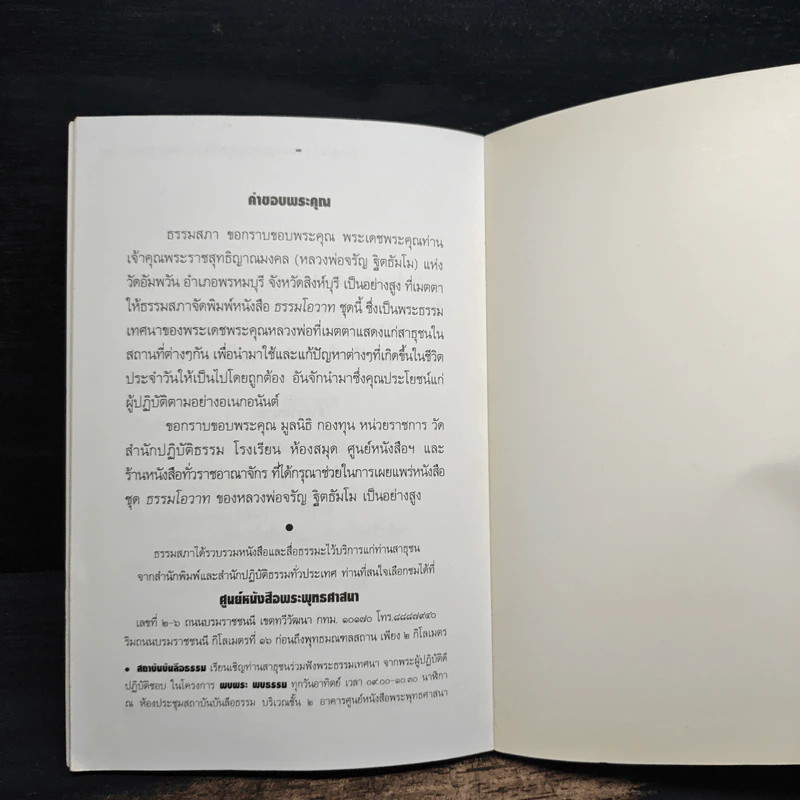 คำขอบพระคุณ
ธรรมสภา ขอกราบขอบพระคุณ พระเดชพระคุณท่าน
เจ้าคุณพระราชสุทธิญาณมงคล (หลวงพ่อจรัญ ฐิตธัมโม) แห่ง
วัดอัมพวัน อำเภอพรหมบุรี จังหวัดสิงห์บุรี เป็นอย่างสูง ที่เมตตา
ให้ธรรมสภาจัดพิมพ์หนังสือ ธรรมโอวาท ชุดนี้ ซึ่งเป็นพระธรรม
เทศนาของพระเดชพระคุณหลวงพ่อที่เมตตาแสดงแก่สาธุชนใน
สถานที่ต่างๆกัน เพื่อนำมาใช้และแก้ปัญหาต่างๆที่เกิดขึ้นในชีวิต
ประจำวันให้เป็นไปโดยถูกต้อง อันจักนำมาซึ่งคุณประโยชน์แก่
ผู้ปฏิบัติตามอย่างอเนกอนันต์
ขอกราบขอบพระคุณ มูลนิธิ กองทุน หน่วยราชการ วัด
สำนักปฏิบัติธรรม โรงเรียน ห้องสมุด ศูนย์หนังสือฯ และ
ร้านหนังสือทั่วราชอาณาจักร ที่ได้กรุณาช่วยในการเผยแพร่หนังสือ
ชุด ธรรมโอวาท ของหลวงพ่อจรัญ ฐิตธัมโม เป็นอย่างสูง
●
ธรรมสภาได้รวบรวมหนังสือและสื่อธรรมะไว้บริการแก่ท่านสาธุชน
จากสำนักพิมพ์และสำนักปฏิบัติธรรมทั่วประเทศ ท่านที่สนใจเลือกชมได้ที่
ศูนย์หนังสือพระพุทธศาสนา
เลขที่ ๒-๖ ถนนบรมราชชนนี เขตทวีวัฒนา กทม. ๑๐๑๗๐ โทร.๘๘๘๗๙๔๐
ริมถนนบรมราชชนนี กิโลเมตรที่ ๑๖ ก่อนถึงพุทธมณฑลสถาน เพียง ๒ กิโลเมตร
● สถาบันบันลือธรรม เรียนเชิญท่านสาธุชนร่วมฟังพระธรรมเทศนา จากพระผู้ปฏิบัติดี
ปฏิบัติชอบ ในโครงการ พบพระ พบธรรม ทุกวันอาทิตย์ เวลา ๐๙.๐๐-๑๐.๓๐ นาฬิกา
ณ ห้องประชุมสถาบันบันลือธรรม บริเวณชั้น ๒ อาคารศูนย์หนังสือพระพุทธศาสนา